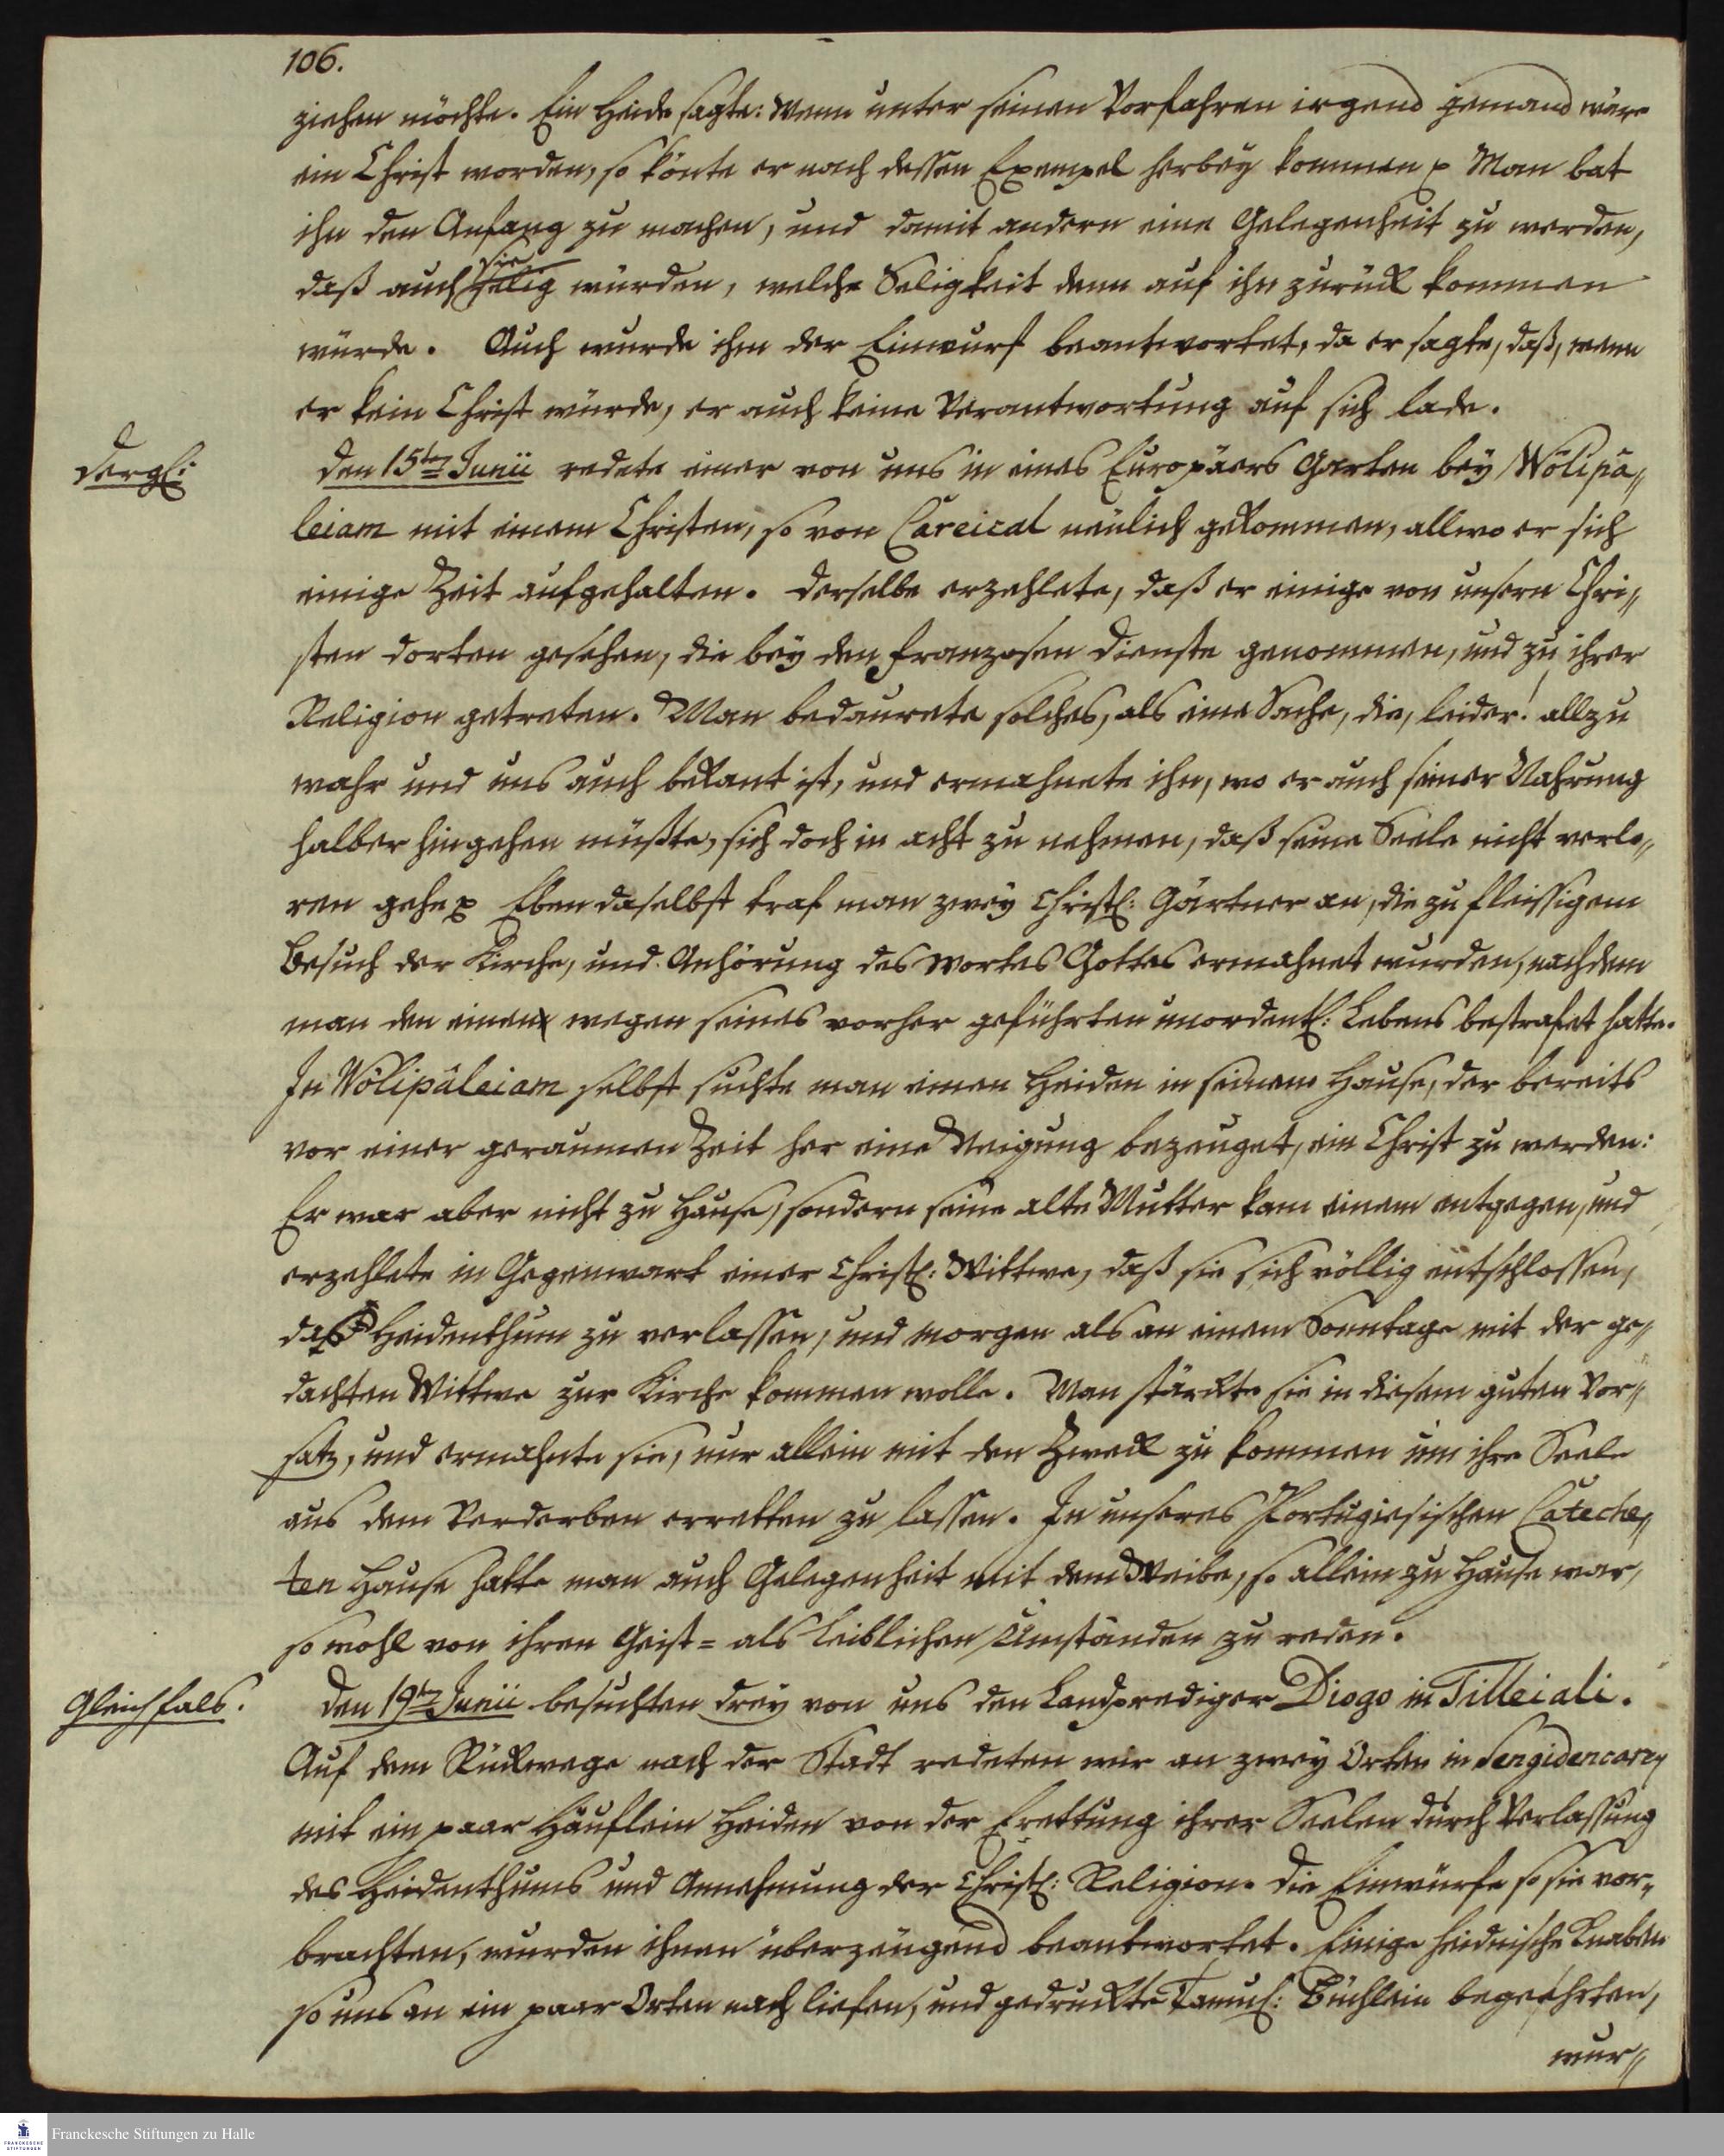 106.
ziehen möchte. Ein Heide sagte: Wenn unter seinen Vorfahren irgend jemand wäre
ein Christ worden, so könte er nach dessen Exempel herbey kommen p Man bat
ihn den Anfang zu machen, und damit andern eine Gelegenheit zu werden,
daß auch sie selig würden, welche Seligkeit denn auf ihn zurück kommen
würde. Auch wurde ihm der Einwurf beantwortet, da er sagte, daß, wenn
er kein Christ würde, er auch keine Verantwortung auf sich lade.
dergl:
den 15ten Junii redete einer von uns in eines Europäers Garten bey Wölipâ„
leiam mit einem Christen, so von Careical neulich gekommen, allwo er sich
einige Zeit aufgehalten. Derselbe erzehlete, daß er einige von unsern Chri„
sten dorten gesehen, die bey den Franzosen Dienste genommen, und zu ihrer
Religion getreten. Man bedaurete solches, als eine Sache, die, leider! allzu
wahr und uns auch bekant ist, und ermahnete ihn, wo er auch seiner Nahrung
halber hingehen müßte, sich doch in acht zu nehmen, daß seine Seele nicht verlo„
ren gehe p Eben daselbst traf man zwey Christl: Gärtner an, die zu fleissigem
Besuch der Kirche, und Anhörung des Wortes Gottes ermahnet wurden, nachdem
man den einen wegen seines vorher geführten unordentl: Lebens bestrafet hatte.
In Wölipâleiam selbst suchte man einen Heiden in seinem Hause, der bereits
vor einer geraumen Zeit her eine Neigung bezeuget, ein Christ zu werden:
Er war aber nicht zu Hause, sondern seine alte Mutter kam einem entgegen, und
erzehlete in Gegenwart einer Christl: Wittwe, daß sie sich völlig entschlossen,
das Heidenthum zu verlassen, und morgen als an einem Sonntage mit der ge„
dachten Wittwe zur Kirche kommen wolle. Man stärckte sie in diesem guten Vor„
satz, und ermahnte sie, nur allein mit den Zweck zu kommen um ihre Seele
aus dem Verderben erretten zu lassen. In unseres Portugiesischen Cateche„
ten Hause hatte man auch Gelegenheit mit dem Weibe, so allein zu Hause war,
so wohl von ihren Geist= als Leiblichen Umständen zu reden.
Gleichfals.
den 19ten Junii besuchten drey von uns den Landprediger Diogo in Tilleiali.
Auf dem Rückwege nach der Stadt redeten wir an zwey Orten in Sengidencarey
mit ein paar Häuflein Heiden von der Erettung ihrer Seelen durch Verlassung
des Heidenthums und Annehmung der Christl: Religion. Die Einwürfe so sie vor„
brachten, wurden ihnen überzeugend beantwortet. Einige heidnische Knaben
so uns an ein paar Orten nach liefen, und gedruckte Tamul: Büchlein begehrten,
wur„
Franckesche Stiftungen zu Halle
FRANCKESCHE
STIFTUNGEN